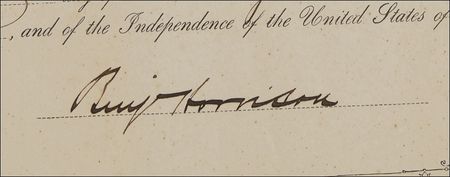 , and of the Independence of the United States of
Benj Harrison